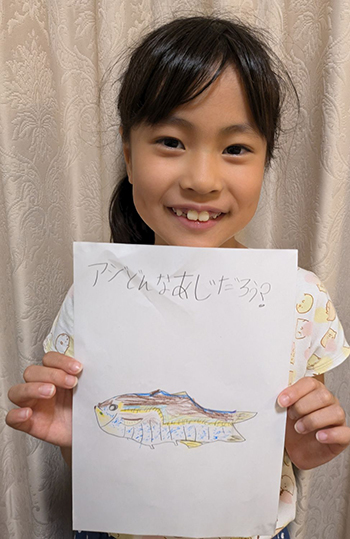 アジどんなあじだろう?